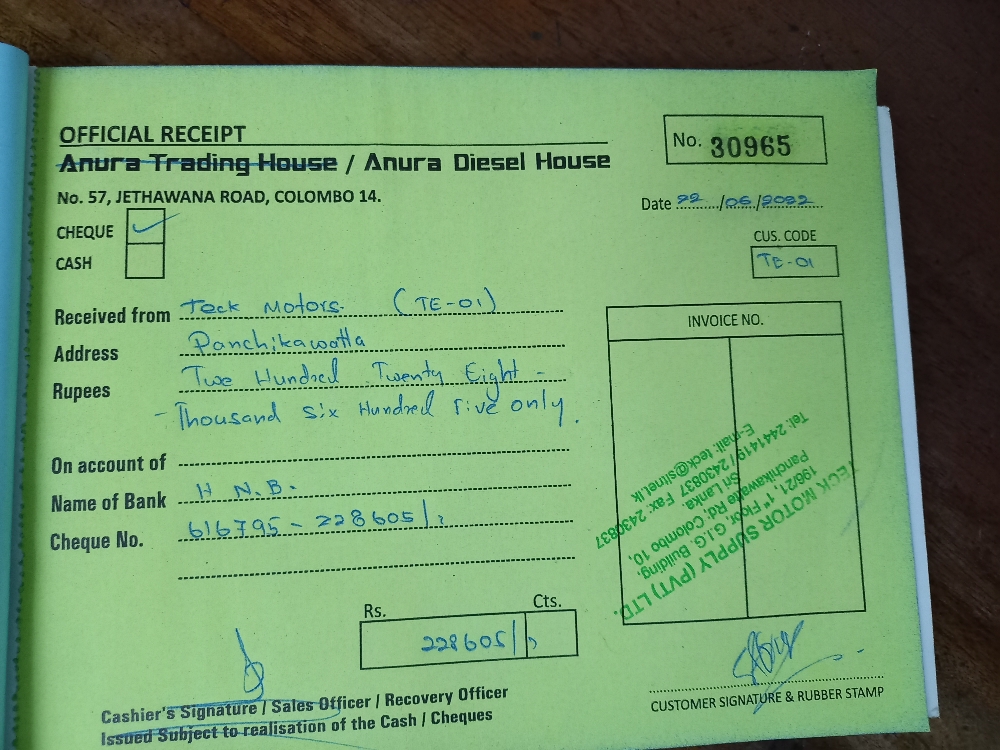 OFFICIAL RECEIPT
Anura Trading House / Anura Diesel House
No. 57, JETHAWANA ROAD, COLOMBO 14.
No. 30965
Date 22/06/2022
CHEQUE
CASH
CUS. CODE
TE-01
Received from Teck Motors. (TE-01)
Address Panchikawatta
Rupees Two Hundred Twenty Eight -
- Thousand Six Hundred Five only.
On account of
Name of Bank H. N. B.
Cheque No. 616795 - 228605/
INVOICE NO.
TECK MOTOR SUPPLY (PVT) LTD.
196/21, 1st Floor, G.I.G. Building,
Panchikawatte Rd, Colombo 10,
Sri Lanka.
Tel: 2441419 / 2430837 Fax: 2430837
E-mail: teck@sltnet.lk
Rs. Cts.
228605/
Cashier's Signature / Sales Officer / Recovery Officer
Issued Subject to realisation of the Cash / Cheques
CUSTOMER SIGNATURE & RUBBER STAMP